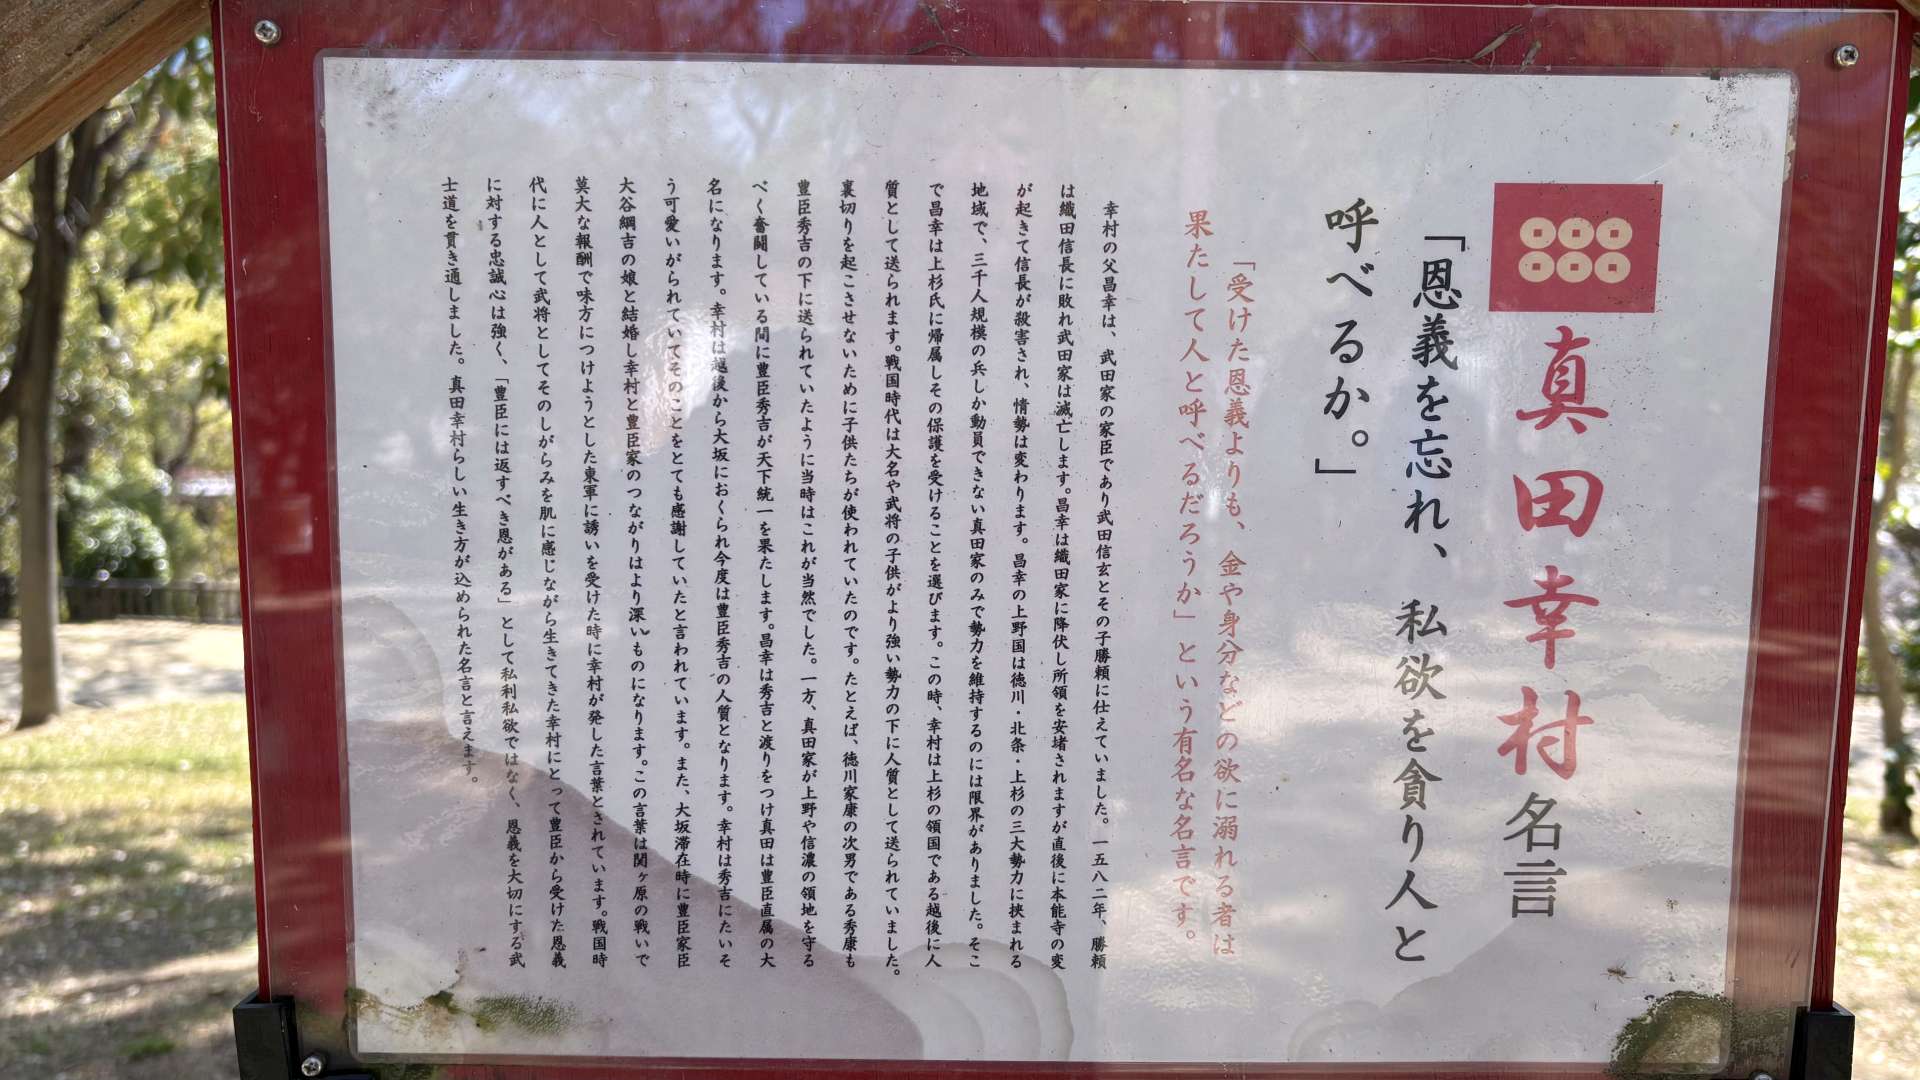 真田幸村名言
「恩義を忘れ、私欲を貪り人と
呼べるか。」
「受けた恩義よりも、金や身分などの欲に溺れる者は
果たして人と呼べるだろうか」という有名な名言です。
幸村の父昌幸は、武田家の家臣であり武田信玄とその子勝頼に仕えていました。一五八二年、勝頼
は織田信長に敗れ武田家は滅亡します。昌幸は織田家に降伏し所領を安堵されますが直後に本能寺の変
が起きて信長が殺害され、情勢は変わります。昌幸の上野国は徳川・北条・上杉の三大勢力に挟まれる
地域で、三千人規模の兵しか動員できない真田家のみで勢力を維持するのには限界がありました。そこ
で昌幸は上杉氏に帰属しその保護を受けることを選びます。この時、幸村は上杉の領国である越後に人
質として送られます。戦国時代は大名や武将の子供がより強い勢力の下に人質として送られていました。
裏切りを起こさせないために子供たちが使われていたのです。たとえば、徳川家康の次男である秀康も
豊臣秀吉の下に送られていたように当時はこれが当然でした。一方、真田家が上野や信濃の領地を守る
べく奮闘している間に豊臣秀吉が天下統一を果たします。昌幸は秀吉と渡りをつけ真田は豊臣直属の大
名になります。幸村は越後から大坂におくられ今度は豊臣秀吉の人質となります。幸村は秀吉にたいそ
う可愛いがられていてそのことをとても感謝していたと言われています。また、大坂滞在時に豊臣家臣
大谷綱吉の娘と結婚し幸村と豊臣家のつながりはより深いものになります。この言葉は関ヶ原の戦いで
莫大な報酬で味方につけようとした東軍に誘いを受けた時に幸村が発した言葉とされています。戦国時
代に人として武将としてそのしがらみを肌に感じながら生きてきた幸村にとって豊臣から受けた恩義
に対する忠誠心は強く、「豊臣には返すべき恩がある」として私利私欲ではなく、恩義を大切にする武
士道を貫き通しました。真田幸村らしい生き方が込められた名言と言えます。